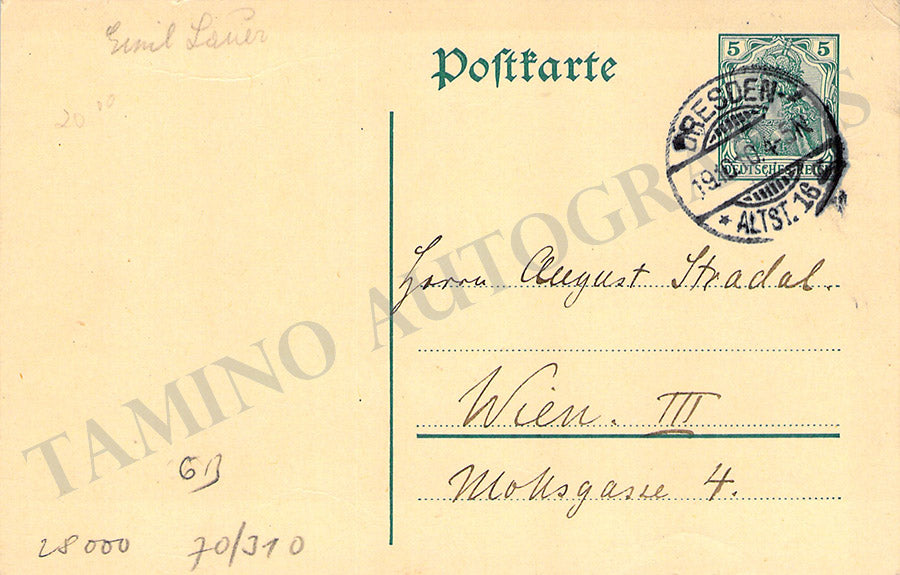 Emil Sauer
20 00
Postkarte
5 5
DEUTSCHES REICH
DRESDEN
* ALTST. 16
Herrn August Stradal.
Wien. III
Mohsgasse 4.
GB
28000 70/310
TAMINO AUTOGRAPHS